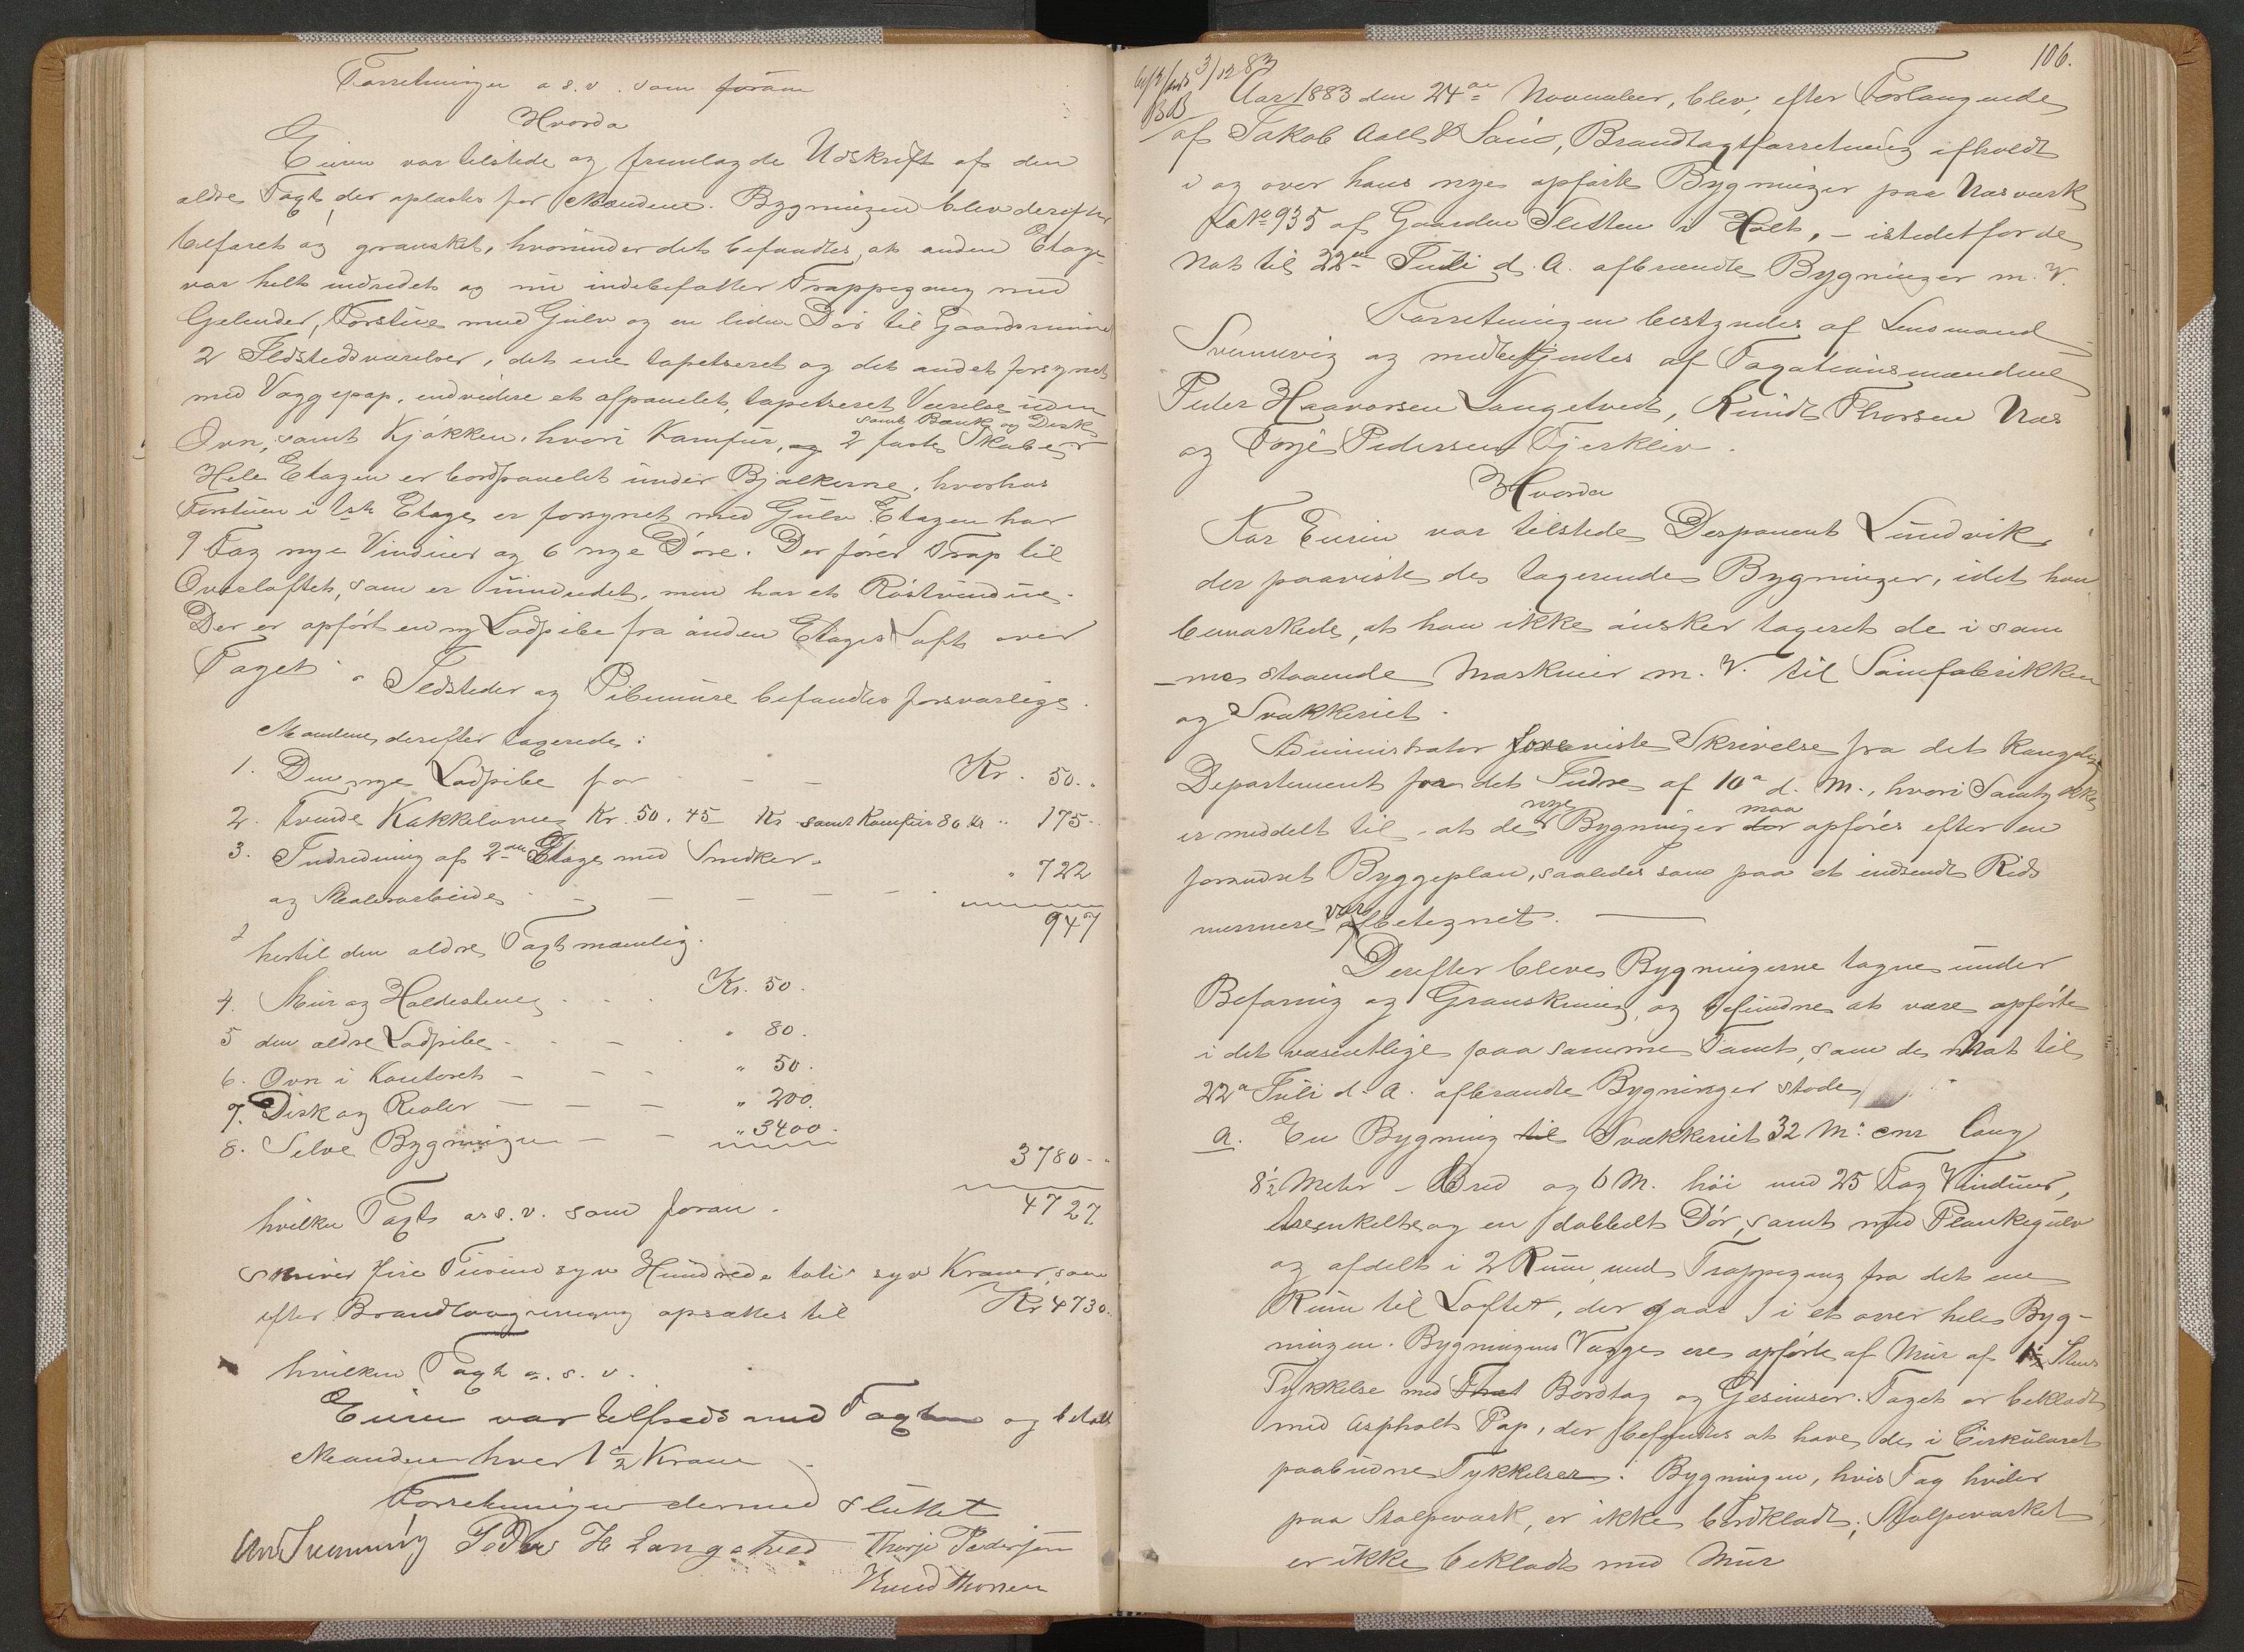 Forretningen o s. v. som foran
Hvorda
Eieren var tilstede og fremlagde Udskrift af den
ældre Taxt, der oplæstes for Mændene. Bygningen blev derefter
befaret og gransket, hvorunder det befandtes, at anden Etage
var helt indredet og nu indebefatter Trappegang med
Gelender, Forstue med Gulv og en liden Dør til Gaardsrummet
2 Ildstedsværelser, det ene tapetseret og det andet forsynet
med Væggepap, endvidere et afpanelet, tapetseret Værelse uden
samt Bænk og Disk
Ovn, samt Kjøkken, hvori Komfur, og 2 faste Skabe
Hele Etagen er bordpanelet under Bjælkerne, hvorhos
Forstuen i 1ste Etage er forsynet med Gulv. Etagen har
9 Fag nye Vinduer og 6 nye Døre. Der fører Trap til
Øversloftet, som er uindredet, men har et Røstvindue.
Der er opført en ny Lodpibe fra anden Etages Loft over
Taget. Ildsteder og Pibemure befandtes forsvarlige.
Mændene derefter taxerede:
1. Den nye Lodpibe for - - - Kr. 50. "
2. Tvende Kakkelovne Kr. 50. 45 Kr samt Komfur 80 Kr " 175 -
3. Indredning af 2den Etage med Snedker-
og Malerarbeide - - - - - " 722
947
hertil den ældre Taxt nemlig.
4. Mur og Heldestene . . . Kr. 50.
5 den ældre Lodpibe - - - " 80.
6. Ovn i Kontoret - - - " 50.
7. Disk og Realer - - - " 200.
8. Selve Bygningen - - " 3400.
3780 - "
hvilken Taxt o. s. v. som foran. 4727
skriver fire Tusind syv Hundrede toti syv Kroner, som
efter Brandlovgivningen opsættes til Kr 4730.
hvilken Taxt o. s. v.
Eieren var tilfreds med Taxten og betalte
Mændene hver 1 1/2 Krone
Forretningen dermed sluttet
And Svennevig Peder H Langetved Thorje Pedersen
Knud Thorsen
106.
3/12 83
BB
Aar 1883 den 24de November, blev, efter Forlangende
af Jakob Aall & Søn, Brandtaxtforretning afholdt
i og over hans nye opførte Bygninger paa Næs værk
LNo 935 af Gaarden Sletten i Holt, - istedetfor de
Nat til 22de Juli d. A. afbrændte Bygninger m. V.
Forretningen bestyredes af Lensmand
Svennevig og medbetjentes af Taxationsmændene
Peder Haavorsen Langetvedt, Knudt Thorsen Næs
og Torje Pedersen Fjerkleiv.
Hvorda
For Eieren var tilstede Desponent Lundvik
der paaviste de taxerende Bygninger, idet han
bemærkede, at han ikke ønsker taxeret de i sam
-me staaende Maskiner m. V. til Sømfabrikken
og Snækkeriet.
Administrator foreviste Skrivelse fra det Kongelige
Departement for det Indre af 10de d. M., hvori Samtykke
nye maa
er meddelt til, at de Bygninger der opføres efter en
forandret Byggeplan, saaledes som paa et indsendt Rids
var
nærmere afbetegnet.
Derefter bleves Bygningerne tagne under
Befaring og Granskning, og befundne at være opførte
i det væsentlige paa samme Tomt, som de Nat til
22de Juli d. A. afbrændte Bygninger stode
a. En Bygning til Snækkeriet 32 M: cmr lang
8 1/2 Meter - Bred og 6 M. høi med 25 Fag Vinduer,
tre enkelte og en dobbelt Dør, samt med Plankegulv
og afdelt i 2 Rum, med Trappegang fra det ene
Rum til Loftet, der gaar i et over hele Byg-
ningen. Bygningens Vægge ere opførte af Mur af 1/2 Stens
Tykkelse med Bordtag og Gesimser. Taget er beklædt
med Asphalt Pap, der befandtes at have de i Cirkulæret
paabudne Tykkelser. Bygningen, hvis Tag hviler
paa Stolpeværk, er ikke bordklædt; Stolpeværket
er ikke beklædt med Mur